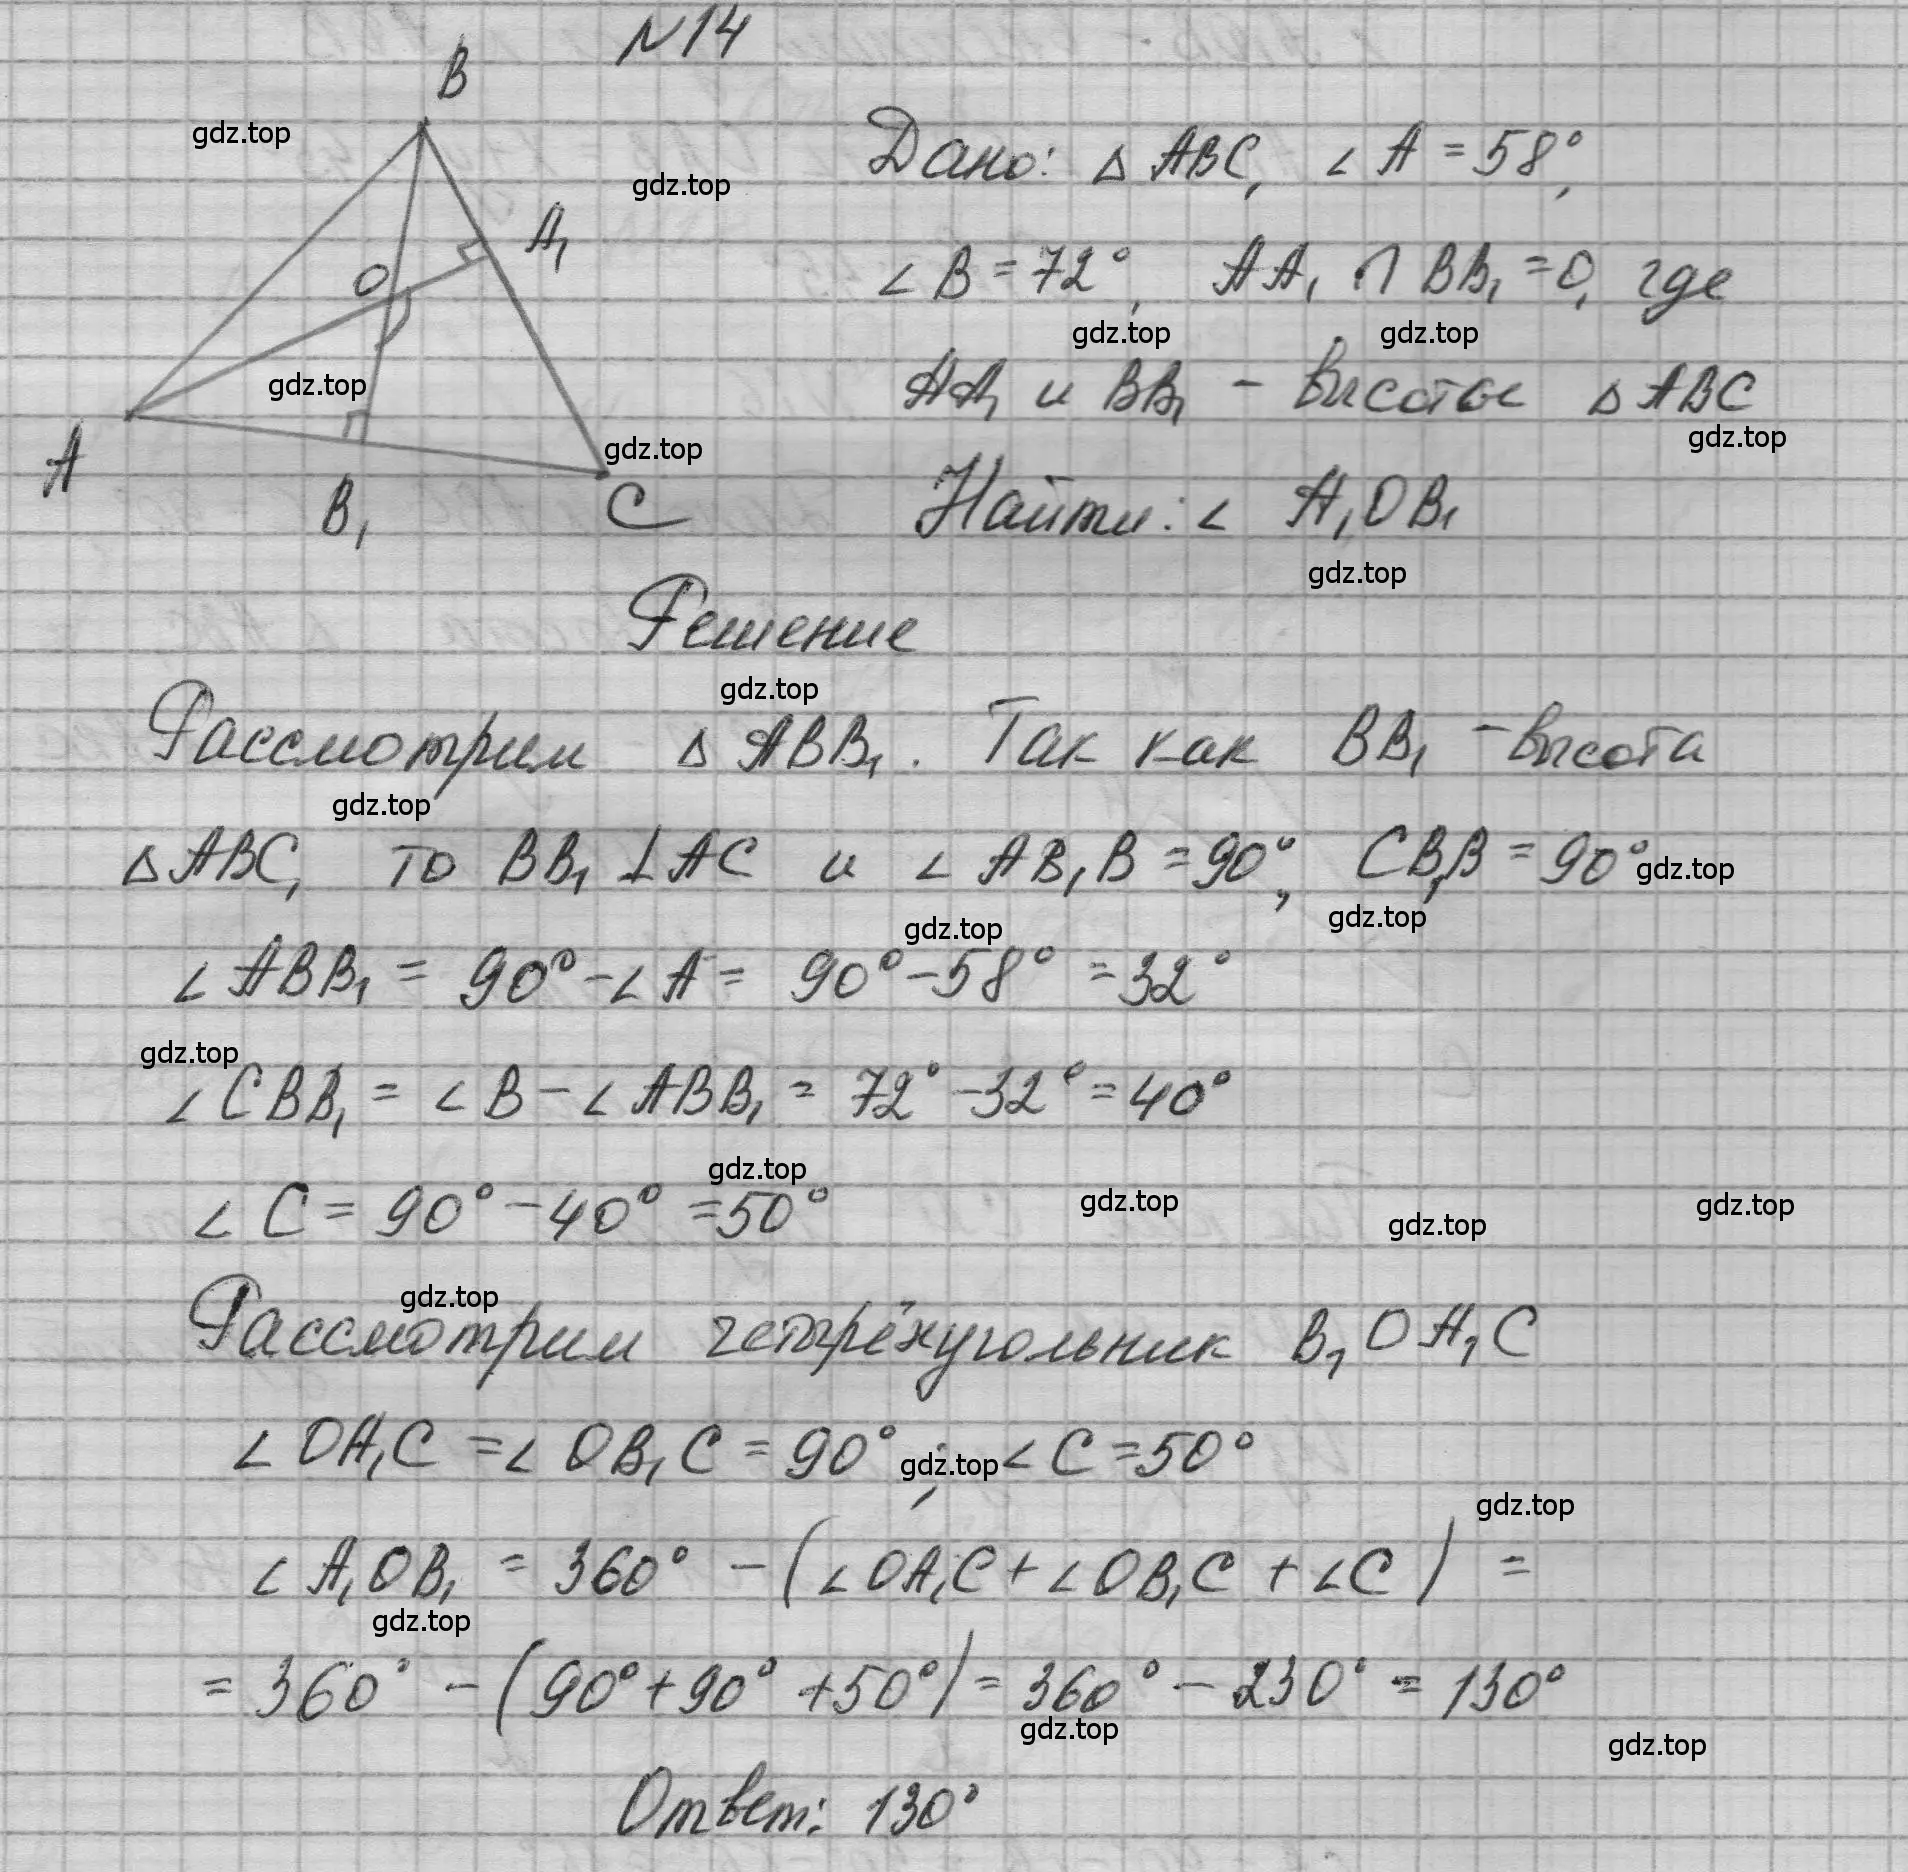 N14
B
gdz.top
Дано: △ ABC, ∠ A = 58°,
gdz.top
A₁
O
∠ B = 72°, AA₁ ∩ BB₁ = O, где
gdz.top gdz.top
gdz.top
AA₁ и BB₁ - высоты △ ABC
gdz.top gdz.top
A
B₁ C
Найти: ∠ A₁OB₁
gdz.top
Решение
gdz.top
Рассмотрим △ ABB₁. Так как BB₁ - высота
gdz.top
△ ABC, то BB₁ ⊥ AC и ∠ AB₁B = 90°, CB₁B = 90° gdz.top
gdz.top gdz.top
∠ ABB₁ = 90° - ∠ A = 90° - 58° = 32°
gdz.top
∠ CBB₁ = ∠ B - ∠ ABB₁ = 72° - 32° = 40°
gdz.top
∠ C = 90° - 40° = 50° gdz.top gdz.top gdz.top
gdz.top
Рассмотрим четырёхугольник B₁OA₁C
∠ OA₁C = ∠ OB₁C = 90°; gdz.top ∠ C = 50°
gdz.top
∠ A₁OB₁ = 360° - (∠ OA₁C + ∠ OB₁C + ∠ C) =
gdz.top
= 360° - (90° + 90° + 50°) = 360° - 230° = 130°
gdz.top gdz.top
Ответ: 130°